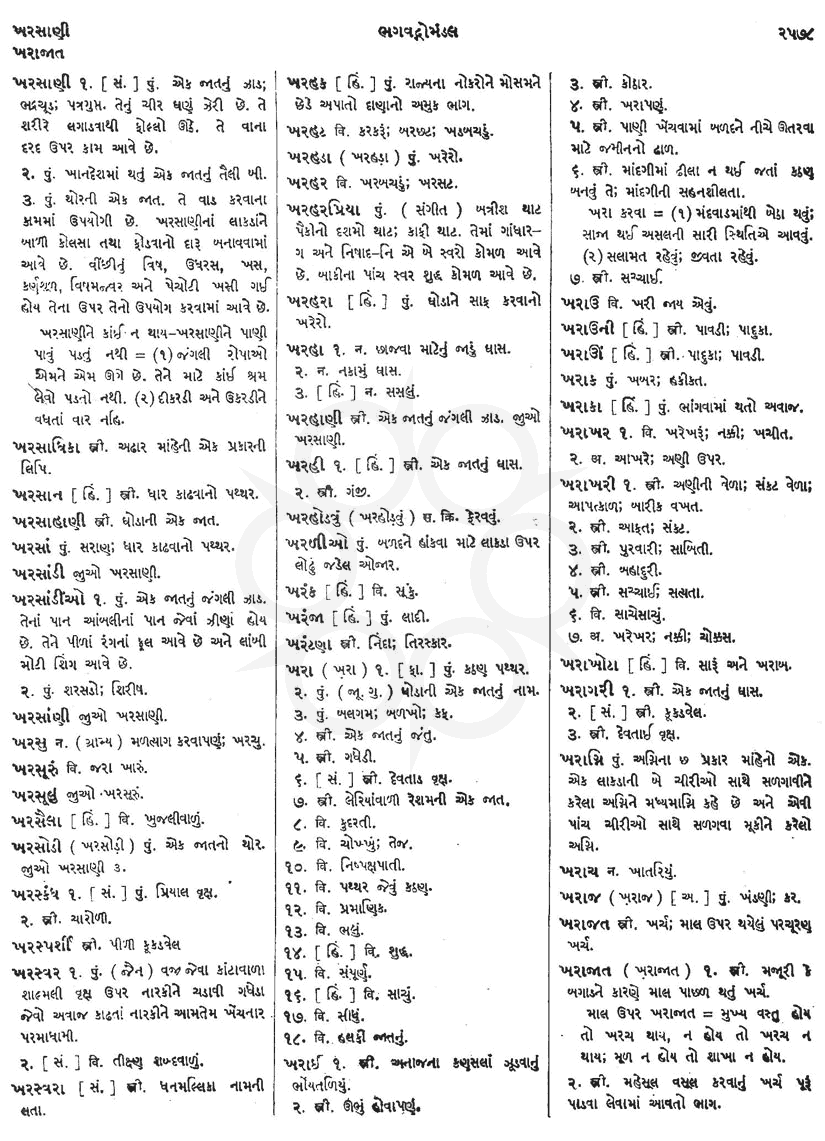 ખરસાણી
ખરાજાત
ભગવદ્ગોમંડલ
૨૫૭૮
ખરસાણી ૧. [ સં. ] પું. એક જાતનું ઝાડ;
ભદ્રચૂડ; પત્રગુપ્ત. તેનું ચીર ઘણું ઝેરી છે. તે
શરીરે લગાડવાથી ફોલ્લો ઊઠે. તે વાના
દરદ ઉપર કામ આવે છે.
૨. પું. ખાનદેશમાં થતું એક જાતનું તૈલી બી.
૩. પું. થોરની એક જાત. તે વાડ કરવાના
કામમાં ઉપયોગી છે. ખરસાણીનાં લાકડાંને
બાળી કોલસા તથા ફોડવાનો દારૂ બનાવવામાં
આવે છે. વીંછીનું વિષ, ઉધરસ, ખસ,
કર્ણશૂળ, વિષમજ્વર અને પેચોટી ખસી ગઈ
હોય તેના ઉપર તેનો ઉપયોગ કરવામાં આવે છે.
ખરસાણીને કાંઈ ન થાય-ખરસાણીને પાણી
પાવું પડતું નથી = (૧) જંગલી રોપાઓ
એમને એમ ઊગે છે. તેને માટે કાંઈ શ્રમ
લેવો પડતો નથી. (૨) દીકરડી અને ઉકરડીને
વધતાં વાર નહિ.
ખરસાવિકા સ્ત્રી. અઢાર માંહેની એક પ્રકારની
લિપિ.
ખરસાન [ હિં. ] સ્ત્રી. ધાર કાઢવાનો પથ્થર.
ખરસાહાણી સ્ત્રી. ઘોડાની એક જાત.
ખરસાં પું. સરાણ; ધાર કાઢવાનો પથ્થર.
ખરસાંડી જુઓ ખરસાણી.
ખરસાંડીઓ ૧. પું. એક જાતનું જંગલી ઝાડ.
તેનાં પાન આંબલીનાં પાન જેવાં ઝીણાં હોય
છે. તેને પીળાં રંગનાં ફૂલ આવે છે અને લાંબી
મોટી શિંગ આવે છે.
૨. પું. શરસડો; શિરીષ.
ખરસાંણી જુઓ ખરસાણી.
ખરસુ ન. ( ગ્રામ્ય ) મળત્યાગ કરવાપણું; ખરચુ.
ખરસૂરું વિ. જરા ખારું.
ખરસૂલું જુઓ ખરસૂરું.
ખરસૈલા [ હિં. ] વિ. ખુજલીવાળું.
ખરસોડી ( ખરસોડ઼ી ) પું. એક જાતનો થોર.
જુઓ ખરસાણી ૩.
ખરસ્કંધ ૧. [ સં. ] પું. પ્રિયાલ વૃક્ષ.
૨. સ્ત્રી. ચારોળી.
ખરસ્પર્શા સ્ત્રી. પીળી કૂકડવેલ
ખરસ્વર ૧. પું. ( જૈન ) વજ્ર જેવા કાંટાવાળા
શાલ્મલી વૃક્ષ ઉપર નારકીને ચડાવી ગધેડા
જેવો અવાજ કાઢતાં નારકીને આમતેમ ખેંચનાર
પરમાધામી.
૨. [ સં. ] વિ. તીક્ષ્ણ શબ્દવાળું.
ખરસ્વરા [ સં. ] સ્ત્રી. ધનમલ્લિકા નામની
લતા.
ખરહક [ હિં. ] પું. રાજ્યના નોકરોને મોસમને
છેડે અપાતો દાણાનો અમુક ભાગ.
ખરહટ વિ. કરકરૂં; બરછટ; ખડબચડું.
ખરહડા ( ખરહડ઼ા ) પું. ખરેરો.
ખરહર વિ. ખરબચડું; ખરસટ.
ખરહરપ્રિયા પું. ( સંગીત ) બત્રીશ થાટ
પૈકીનો દશમો થાટ; કાફી થાટ. તેમાં ગાંધાર-
ગ અને નિષાદ-નિ એ બે સ્વરો કોમળ આવે
છે. બાકીના પાંચ સ્વર શુદ્ધ કોમળ આવે છે.
ખરહરા [ હિં. ] પું. ઘોડાને સાફ કરવાનો
ખરેરો.
ખરહા ૧. ન. છાજવા માટેનું જાડું ઘાસ.
૨. ન. નકામું ઘાસ.
૩. [ હિં. ] ન. સસલું.
ખરહાણી સ્ત્રી. એક જાતનું જંગલી ઝાડ. જુઓ
ખરસાણી.
ખરહી ૧. [ હિં. ] સ્ત્રી. એક જાતનું ઘાસ.
૨. સ્ત્રી. ગંજી.
ખરહોડવું ( ખરહોડ઼વું ) સ. ક્રિ. ફેરવવું.
ખરળીઓ પું. બળદને હાંકવા માટે લાકડા ઉપર
લોઢું જડેલ ઓજાર.
ખરંક [ હિં. ] વિ. સૂકું.
ખરંજા [ હિં. ] પું. લાદી.
ખરંટણા સ્ત્રી. નિંદા; તિરસ્કાર.
ખરા ( ખ઼રા ) ૧. [ ફા. ] પું. કઠણ પથ્થર.
૨. પું. ( જૂ. ગુ. ) ઘોડાની એક જાતનું નામ.
૩. પું. બલગમ; બળખો; કફ.
૪. સ્ત્રી. એક જાતનું જંતુ.
૫. સ્ત્રી. ગધેડી.
૬. [ સં. ] સ્ત્રી. દેવતાડ વૃક્ષ.
૭. સ્ત્રી. લેરિયાંવાળી રેશમની એક જાત.
૮. વિ. કુદરતી.
૯. વિ. ચોખ્ખું; તેજ.
૧૦. વિ. નિષ્પક્ષપાતી.
૧૧. વિ. પથ્થર જેવું કઠણ.
૧૨. વિ. પ્રમાણિક.
૧૩. વિ. ભલું.
૧૪. [ હિં. ] વિ. શુદ્ધ.
૧૫. વિ. સંપૂર્ણ.
૧૬. [ હિં. ] વિ. સાચું.
૧૭. વિ. સીધું.
૧૮. વિ. હલકી જાતનું.
ખરાઈ ૧. સ્ત્રી. અનાજના કણસલાં ઝૂડવાનું
ભોંયતળિયું.
૨. સ્ત્રી. ઊભું હોવાપણું.
૩. સ્ત્રી. કોઠાર.
૪. સ્ત્રી. ખરાપણું.
૫. સ્ત્રી. પાણી ખેંચવામાં બળદને નીચે ઊતરવા
માટે જમીનનો ઢાળ.
૬. સ્ત્રી. માંદગીમાં ઢીલા ન થઈ જતાં કઠણ
બનવું તે; માંદગીની સહનશીલતા.
ખરા કરવા = (૧) મંદવાડમાંથી બેઠા થવું;
સાજા થઈ અસલની સારી સ્થિતિએ આવવું.
(૨) સલામત રહેવું; જીવતા રહેવું.
૭. સ્ત્રી. સચ્ચાઈ.
ખરાઉ વિ. ખરી જાય એવું.
ખરાઉની [ હિં. ] સ્ત્રી. પાવડી; પાદુકા.
ખરાઊં [ હિં. ] સ્ત્રી. પાદુકા; પાવડી.
ખરાક પું. ખબર; હકીકત.
ખરાકા [ હિં. ] પું. ભાંગવામાં થતો અવાજ.
ખરાખર ૧. વિ. ખરેખરૂં; નક્કી; ખચીત.
૨. અ. આખરે; અણી ઉપર.
ખરાખરી ૧. સ્ત્રી. અણીની વેળા; સંકટ વેળા;
આપત્કાળ; બારીક વખત.
૨. સ્ત્રી. આફત; સંકટ.
૩. સ્ત્રી. પુરવારી; સાબિતી.
૪. સ્ત્રી. બહાદુરી.
૫. સ્ત્રી. સચ્ચાઈ સત્યતા.
૬. વિ. સાચેસાચું.
૭. અ. ખરેખર; નક્કી; ચોક્કસ.
ખરાખોટા [ હિં. ] વિ. સારૂં અને ખરાબ.
ખરાગરી ૧. સ્ત્રી. એક જાતનું ઘાસ.
૨. [ સં. ] સ્ત્રી. કૂકડવેલ.
૩. સ્ત્રી. દેવતાઈ વૃક્ષ.
ખરાગ્નિ પું. અગ્નિના છ પ્રકાર માંહેનો એક.
એક લાકડાની બે ચીરીઓ સાથે સળગાવીને
કરેલા અગ્નિને મધ્યમાગ્નિ કહે છે અને એવી
પાંચ ચીરીઓ સાથે સળગવા મૂકીને કરેલો
અગ્નિ.
ખરાચ ન. ખાતરિયું.
ખરાજ ( ખ઼રાજ ) [ અ. ] પું. ખંડણી; કર.
ખરાજત સ્ત્રી. ખર્ચ; માલ ઉપર થયેલું પરચૂરણ
ખર્ચ.
ખરાજાત ( ખ઼રાજાત ) ૧. સ્ત્રી. મજૂરી કે
બગાડને કારણે માલ પાછળ થતું ખર્ચ.
માલ ઉપર ખરાજાત = મુખ્ય વસ્તુ હોય
તો ખરચ થાય, ન હોય તો ખરચ ન
થાય; મૂળ ન હોય તો શાખા ન હોય.
૨. સ્ત્રી. મહેસૂલ વસૂલ કરવાનું ખર્ચ પૂરૂં
પાડવા લેવામાં આવતો ભાગ.